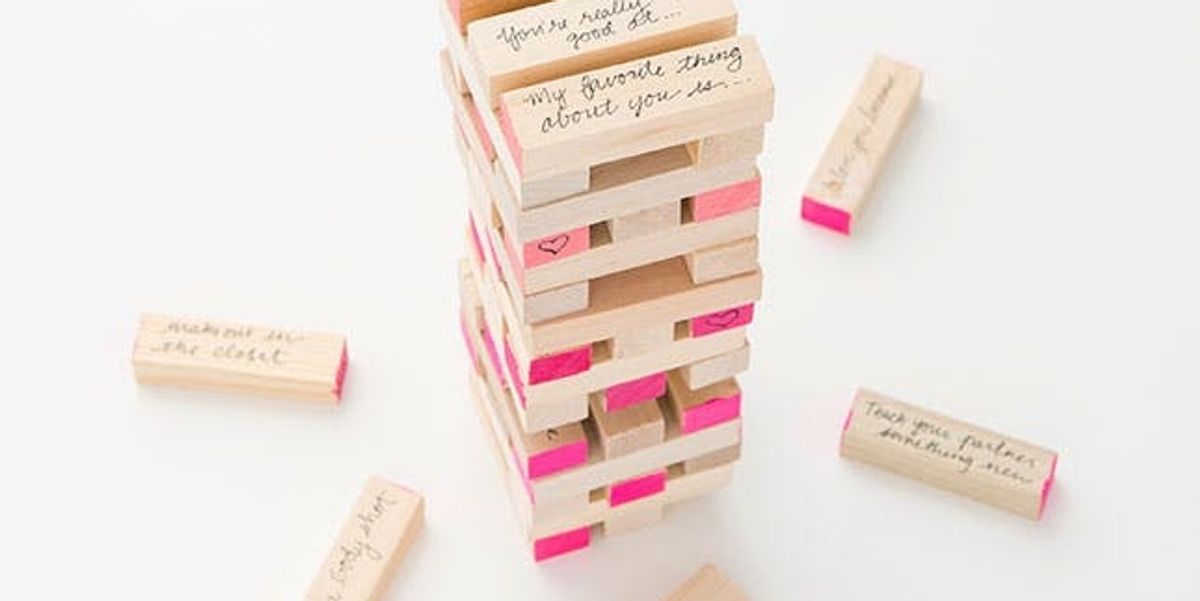 You're really
good at...
My favorite thing
about you is...
make out in
the closet
Teach your partner
something new
body shot